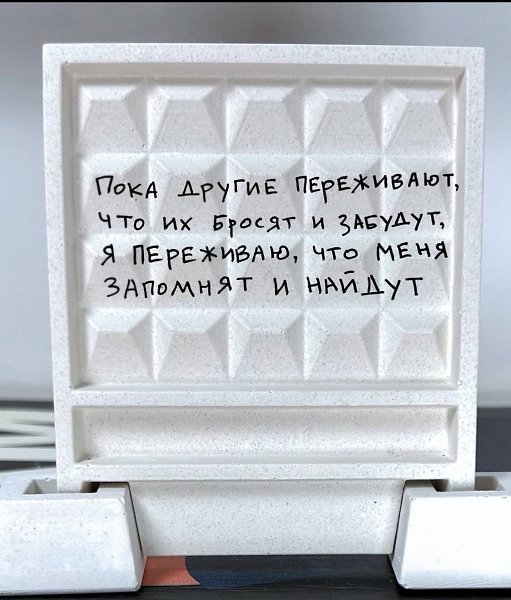 Пока другие переживают,
что их бросят и забудут,
я переживаю, что меня
запомнят и найдут